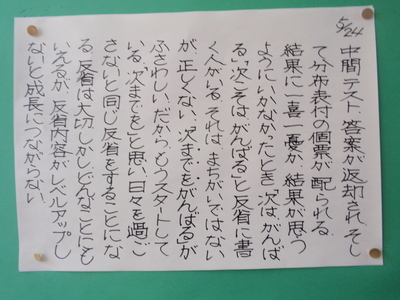 5/24
中間テスト、答案が返却され、そし
て分布表付の個票が配られる。
結果に一喜一憂か、結果が思う
ようにいかなかったとき「次はがんば
る」「次こそはがんばる」と反省に書
く人がいる。それは、まちがいではない
が、正しくない。「次までをがんばる」が
ふさわしい。だから、もうスタートして
いる。次までをと思い、日々を過ご
さないと同じ反省をすることにな
る。反省は大切。しかし、どんなことにも
いえるが、反省内容がレベルアップし
ないと成長につながらない。